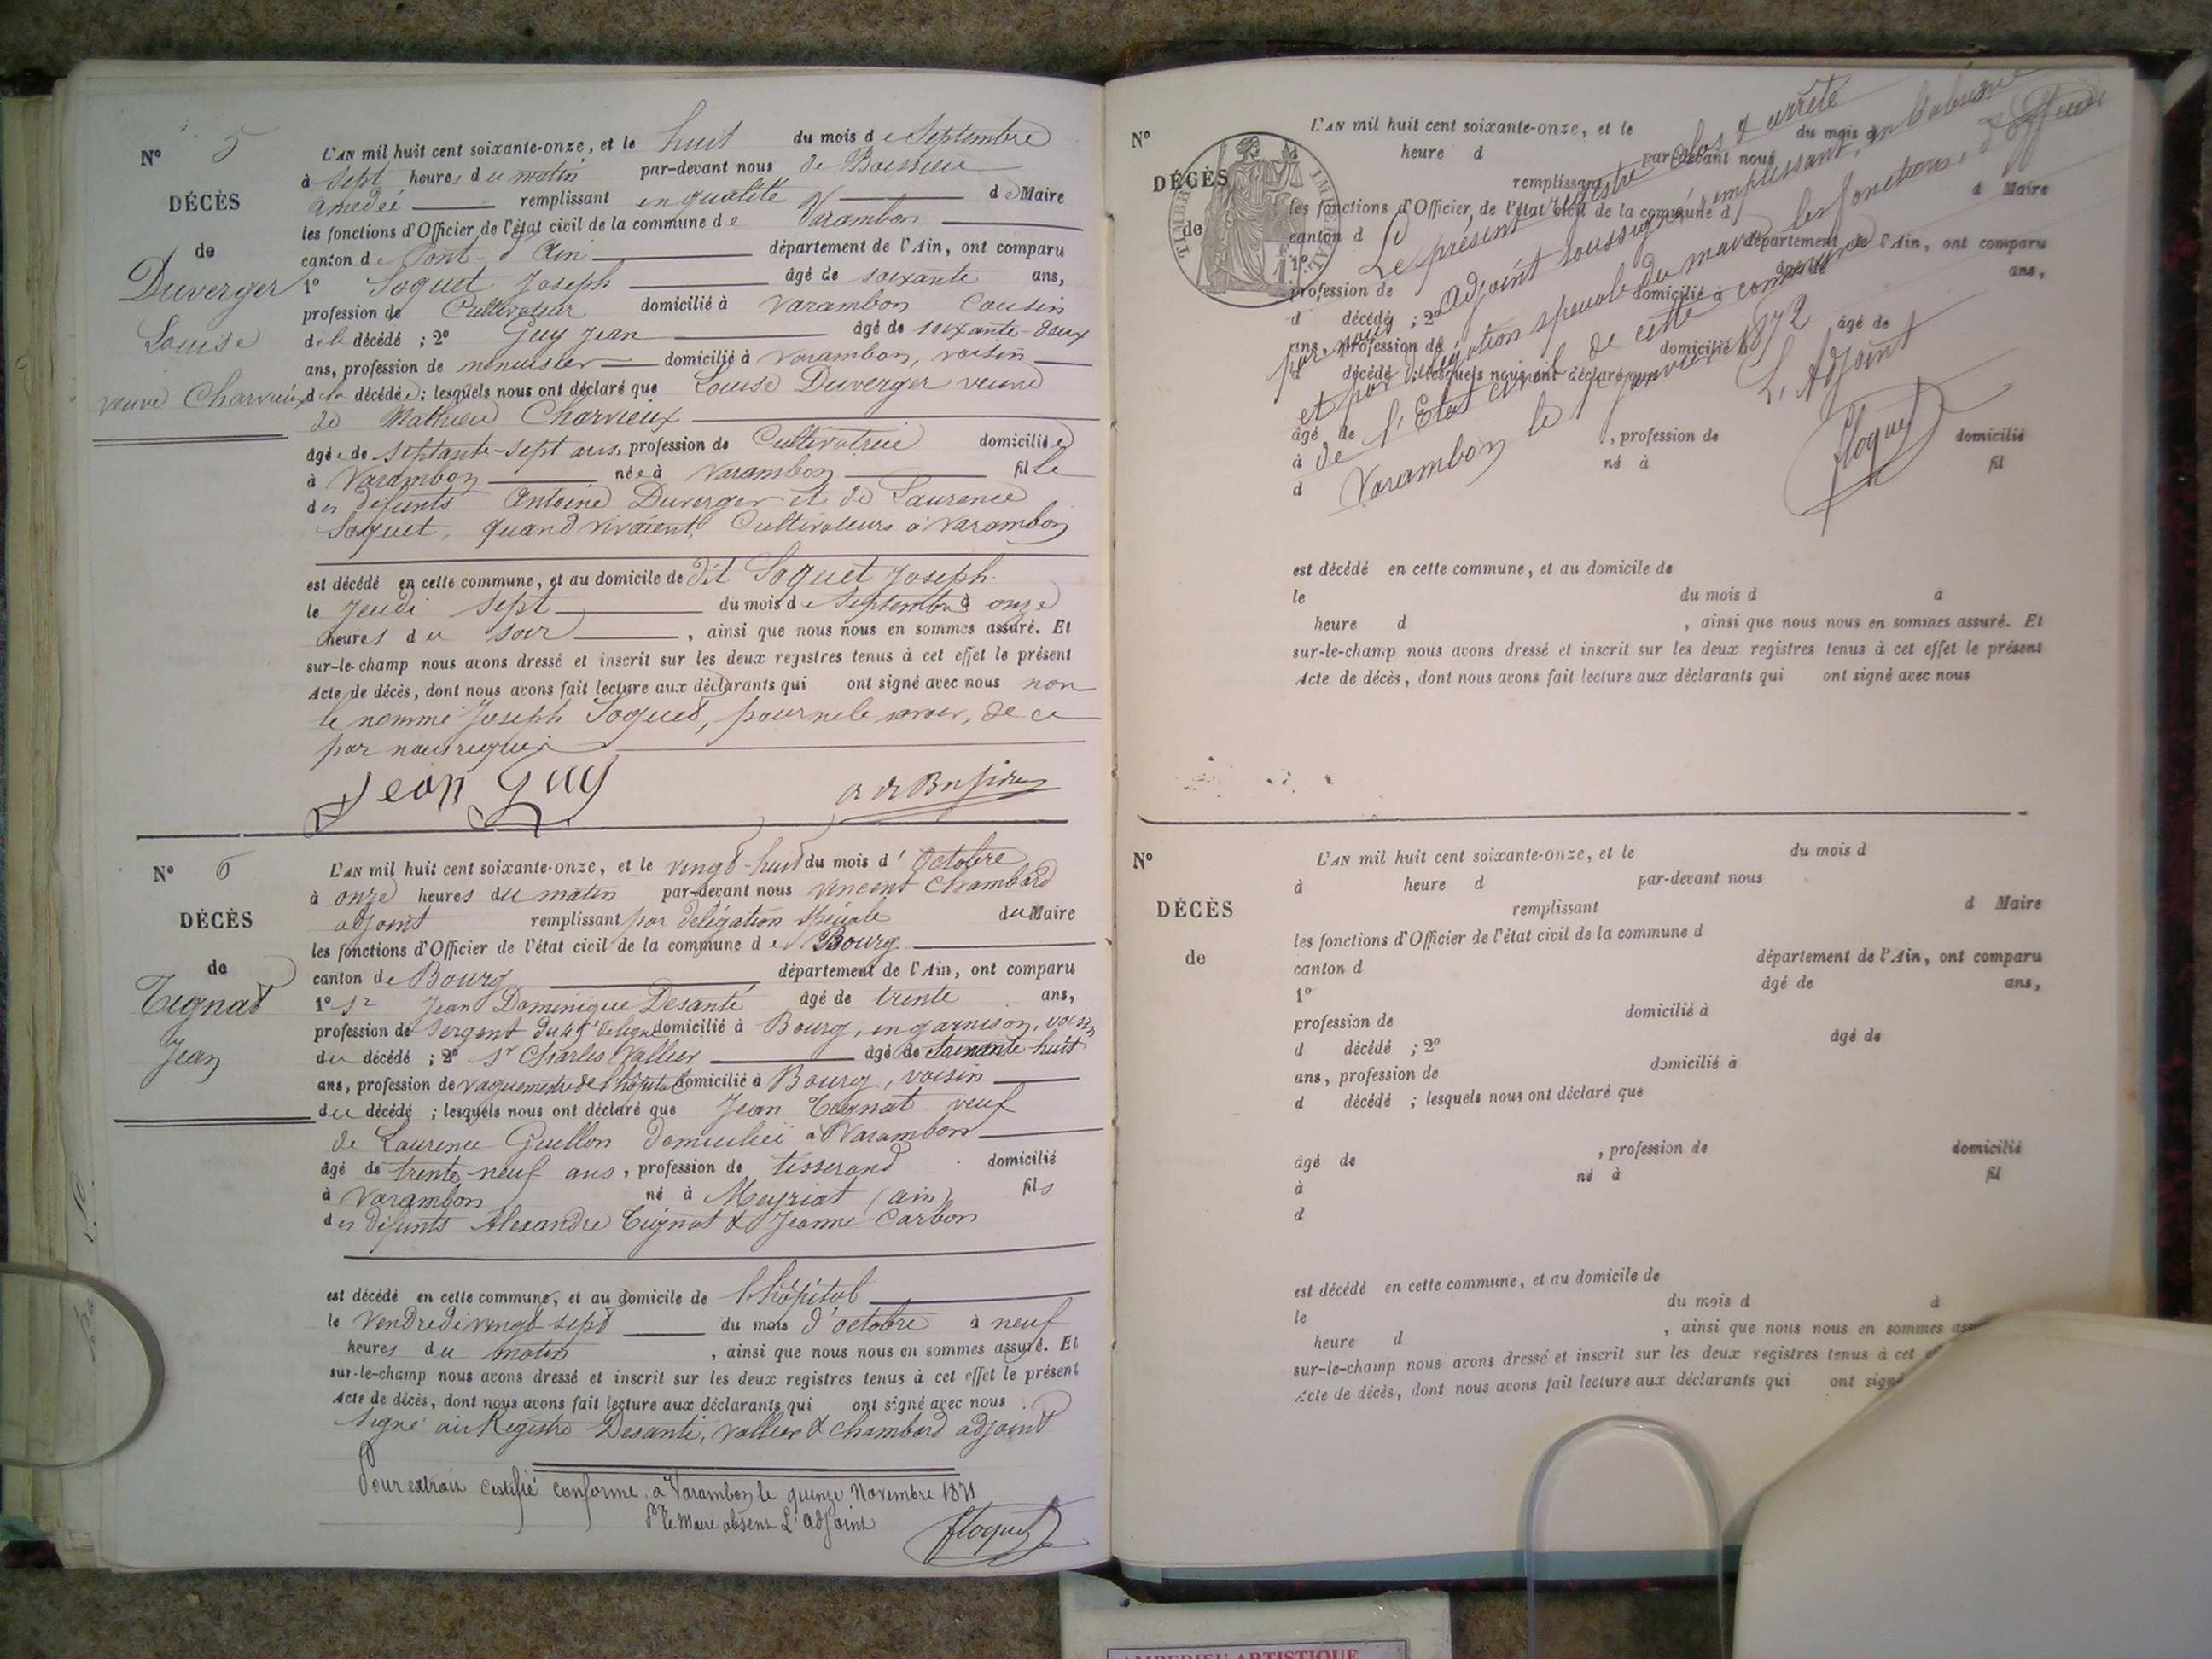 N° 5
DÉCÈS
de
Duverger
Louise
veuve Charvieux
L'AN mil huit cent soixante-onze, et le huit du mois de Septembre
à sept heures du matin par-devant nous de Boissieu
Amedée remplissant en qualité de Maire
les fonctions d'Officier de l'état civil de la commune de Varambon
canton de Pont-d'Ain département de l'Ain, ont comparu
1° Soquet Joseph âgé de soixante ans,
profession de Cultivateur domicilié à Varambon Cousin
de la décédé ; 2° Guy Jean âgé de soixante-deux
ans, profession de menuisier domicilié à Varambon, voisin
de la décédée ; lesquels nous ont déclaré que Louise Duverger veuve
de Mathieu Charvieux
âgée de septante-sept ans, profession de Cultivatrice domiciliée
à Varambon née à Varambon fille
des défunts Antoine Duverger et de Laurence
Soquet, quand vivaient Cultivateurs à Varambon
est décédé en cette commune, et au domicile de dit Soquet Joseph
le Jeudi sept du mois de Septembre à onze
heures du soir , ainsi que nous nous en sommes assuré. Et
sur-le-champ nous avons dressé et inscrit sur les deux registres tenus à cet effet le présent
Acte de décès, dont nous avons fait lecture aux déclarants qui ont signé avec nous non
le nommé Joseph Soquet, pour ne le savoir, de ce
par nous requis
Jean Guy
N° 6
DÉCÈS
de
Tignat
Jean
L'AN mil huit cent soixante-onze, et le vingt-huit du mois d'Octobre
à onze heures du matin par-devant nous Vincent Chambard
adjoint remplissant par délégation spéciale du Maire
les fonctions d'Officier de l'état civil de la commune de Bourg
canton de Bourg département de l'Ain, ont comparu
1° Sr Jean Dominique Desanté âgé de trente ans,
profession de Sergent du 45e de ligne domicilié à Bourg, en garnison, voisin
du décédé ; 2° Sr Charles Vallier âgé de soixante huit
ans, profession de vaguemestre de l'hôpital domicilié à Bourg, voisin
du décédé ; lesquels nous ont déclaré que Jean Tignat veuf
de Laurence Guillon domicilié à Varambon
âgé de trente neuf ans, profession de tisserand domicilié
à Varambon né à Meyriat (ain) fils
des défunts Alexandre Tignat & Jeanne Carbon
est décédé en cette commune, et au domicile de l'hôpital
le Vendredi vingt sept du mois d'octobre à neuf
heures du matin , ainsi que nous nous en sommes assuré. Et
sur-le-champ nous avons dressé et inscrit sur les deux registres tenus à cet effet le présent
Acte de décès, dont nous avons fait lecture aux déclarants qui ont signé avec nous.
Signé au Registre Desanti, Vallier & Chambard adjoint
Pour extrait certifié conforme, à Varambon le quinze Novembre 1871
Pr le Maire absent L'adjoint
Floquet
N°
DÉCÈS
de
TIMBRE IMPÉRIAL
L'AN mil huit cent soixante-onze, et le du mois d
heure d par-devant nous
remplissant d Maire
les fonctions d'Officier de l'état civil de la commune d
canton d département de l'Ain, ont comparu
1° âgé de ans,
profession de domicilié à
d décédé ; 2° âgé de
ans, profession de domicilié à
d décédé ; lesquels nous ont déclaré que
âgé de , profession de domicilié
à né à fil
d
Le présent registre clos & arrêté
par nous adjoint soussigné, remplissant, en
et par délégation spéciale du maire les fonctions, d'officier
de l'Etat civil de cette commune
Varambon le 1er janvier 1872
L'Adjoint
Floquet
est décédé en cette commune, et au domicile de
le du mois d à
heure d , ainsi que nous nous en sommes assuré. Et
sur-le-champ nous avons dressé et inscrit sur les deux registres tenus à cet effet le présent
Acte de décès, dont nous avons fait lecture aux déclarants qui ont signé avec nous
N°
DÉCÈS
de
L'AN mil huit cent soixante-onze, et le du mois d
à heure d par-devant nous
remplissant d Maire
les fonctions d'Officier de l'état civil de la commune d
canton d département de l'Ain, ont comparu
1° âgé de ans,
profession de domicilié à
d décédé ; 2° âgé de
ans, profession de domicilié à
d décédé ; lesquels nous ont déclaré que
âgé de , profession de domicilié
à né à fil
d
est décédé en cette commune, et au domicile de
le du mois d à
heure d , ainsi que nous nous en sommes
sur-le-champ nous avons dressé et inscrit sur les deux registres tenus à cet
Acte de décès, dont nous avons fait lecture aux déclarants qui ont signé
AMBERIEU ARTISTIQUE